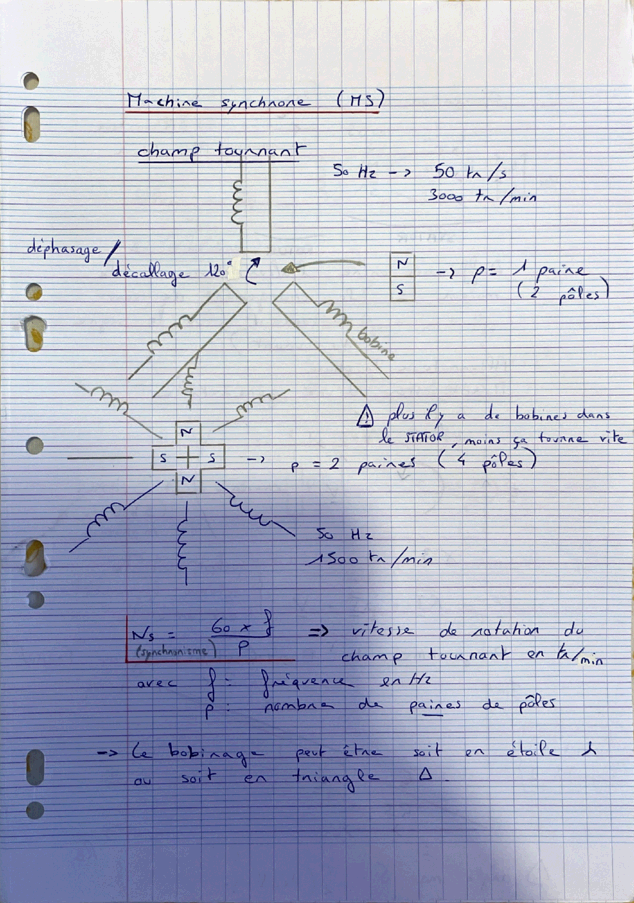 Machine synchrone (MS)
champ tournant
50 Hz -> 50 tr/s
3000 tr/min
déphasage/
décallage 120°
N
S
-> p = 1 paire
(2 pôles)
bobine
⚠ plus il y a de bobines dans
le STATOR, moins ça tourne vite
N
S S
N
-> p = 2 paires (4 pôles)
50 Hz
1500 tr/min
Ns = 60 x f / P => vitesse de rotation du
(synchronisme) champ tournant en tr/min
avec f : fréquence en Hz
p : nombre de paires de pôles
-> Le bobinage peut être soit en étoile ⅄
ou soit en triangle Δ.